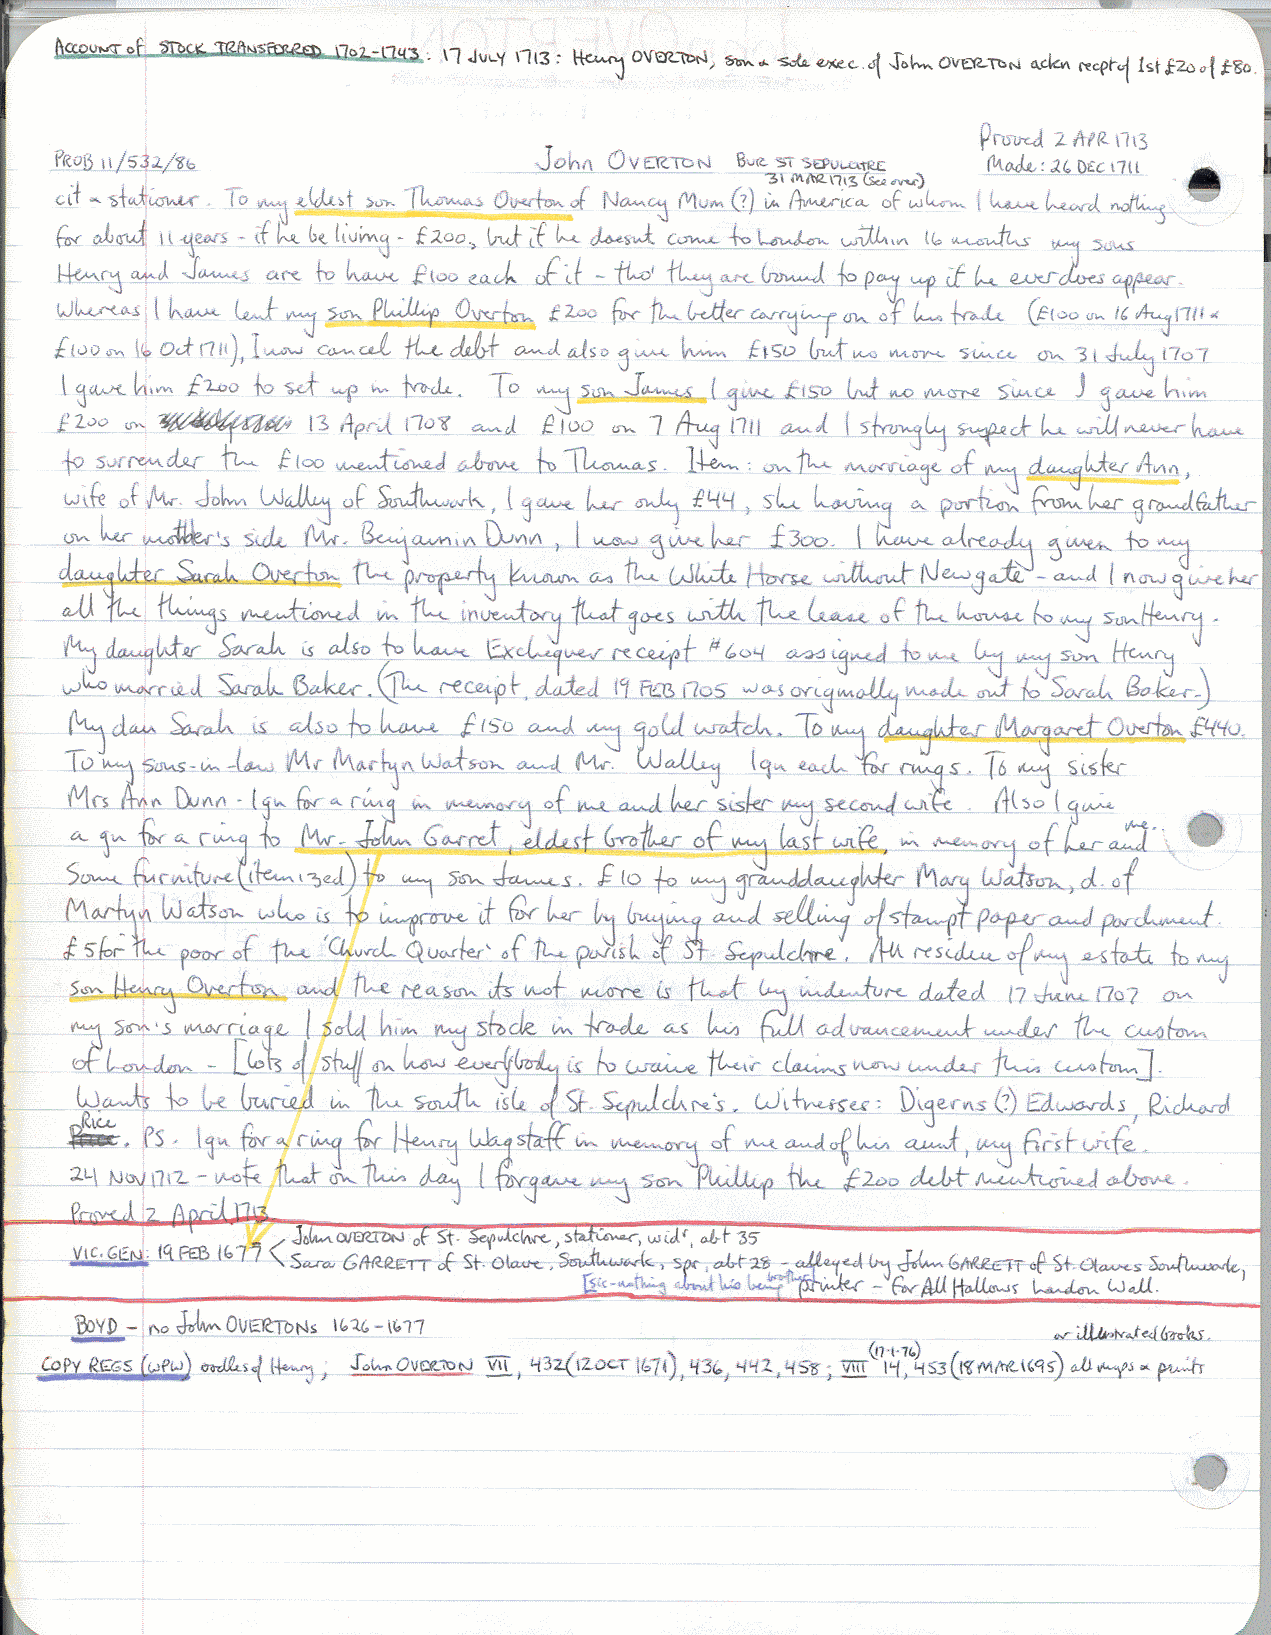 ACCOUNT of STOCK TRANSFERRED 1702-1743: 17 JULY 1713: Henry OVERTON, son & sole exec. of John OVERTON ackn recpt of 1st £20 of £80.
Proved 2 APR 1713
PROB 11/532/86 John OVERTON BUR ST SEPULCHRE Made: 26 DEC 1711
31 MAR 1713 (see over)
cit & stationer. To my eldest son Thomas Overton of Nancy Mum (?) in America of whom I have heard nothing
for about 11 years - if he be living - £200, but if he doesnt come to London within 16 months my sons
Henry and James are to have £100 each of it - tho' they are bound to pay up if he ever does appear.
Whereas I have lent my son Phillip Overton £200 for the better carrying on of his trade (£100 on 16 Aug 1711 &
£100 on 16 Oct 1711), I now cancel the debt and also give him £150 but no more since on 31 July 1707
I gave him £200 to set up in trade. To my son James I give £150 but no more since I gave him
£200 on 13 April 1708 and £100 on 7 Aug 1711 and I strongly suspect he will never have
to surrender the £100 mentioned above to Thomas. Item: on the marriage of my daughter Ann,
wife of Mr. John Walley of Southwark, I gave her only £44, she having a portion from her grandfather
on her mother's side Mr. Benjamin Dunn, I now give her £300. I have already given to my
daughter Sarah Overton the property known as the White Horse without Newgate - and I now give her
all the things mentioned in the inventory that goes with the lease of the house to my son Henry.
My daughter Sarah is also to have Exchequer receipt #604 assigned to me by my son Henry
who married Sarah Baker. (The receipt, dated 19 FEB 1705 was originally made out to Sarah Baker.)
My dau Sarah is also to have £150 and my gold watch. To my daughter Margaret Overton £440.
To my sons-in-law Mr Martyn Watson and Mr. Walley 1gn each for rings. To my sister
Mrs Ann Dunn - 1gn for a ring in memory of me and her sister my second wife. Also I give
a gn for a ring to Mr. John Garret, eldest brother of my last wife, in memory of her and me.
Some furniture (itemized) to my son James. £10 to my granddaughter Mary Watson, d. of
Martyn Watson who is to improve it for her by buying and selling of stampt paper and parchment.
£5 for the poor of the 'Church Quarter' of the parish of St. Sepulchre. All residue of my estate to my
son Henry Overton and the reason its not more is that by indenture dated 17 June 1707 on
my son's marriage I sold him my stock in trade as his full advancement under the custom
of London - [lots of stuff on how everybody is to waive their claims now under this custom].
Wants to be buried in the south isle of St. Sepulchre's. Witnesses: Digerns (?) Edwards, Richard
Rice. PS. 1gn for a ring for Henry Wagstaff in memory of me and of his aunt, my first wife.
24 NOV 1712 - note that on this day I forgave my son Phillip the £200 debt mentioned above.
Proved 2 April 1713
John OVERTON of St. Sepulchre, stationer, widr, abt 35
VIC. GEN: 19 FEB 1677 < Sara GARRETT of St. Olave, Southwark, spr, abt 28 - alleged by John GARRETT of St. Olaves Southwark,
[sic - nothing about his being brother] printer - for All Hallows London Wall.
BOYD - no John OVERTONs 1626-1677
or illustrated books.
COPY REGS (WPW) oodles of Henry; John OVERTON VII, 432 (12 OCT 1671), 436, 442, 458; VIII 14 (17-1-76), 453 (18 MAR 1695) all maps & prints